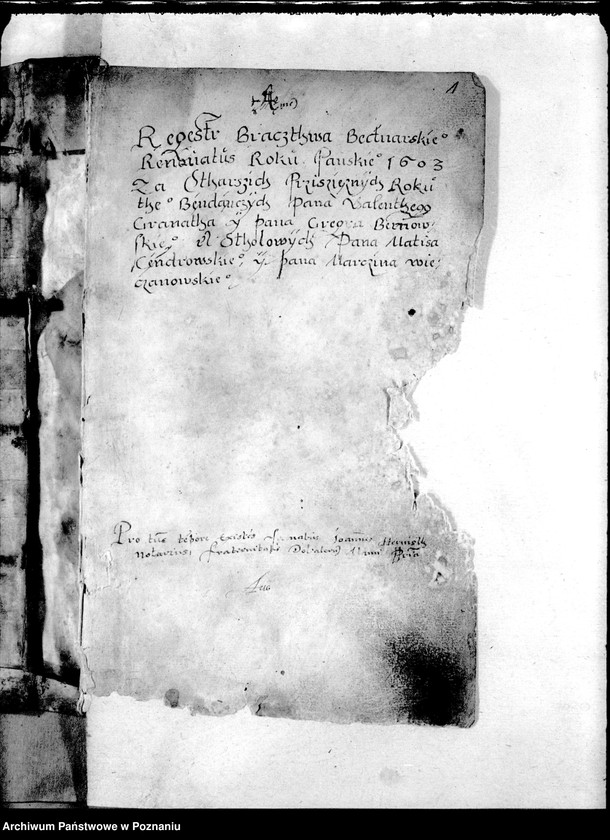 1
Regestr Braczthwa Bednarskieo
Renovatus Roku Panskieo 1603
Za Stharszich Przisięznych Roku
theo Bendączych Pana Valenthego
Granatha y pana Gregra Bernow-
skieo A Stholowych Pana Matisa
Cendrowskieo y pana Marczina Wie-
czanowskieo
Pro tūc tēpore
Notarius Fraternitatis
Archiwum Państwowe w Poznaniu